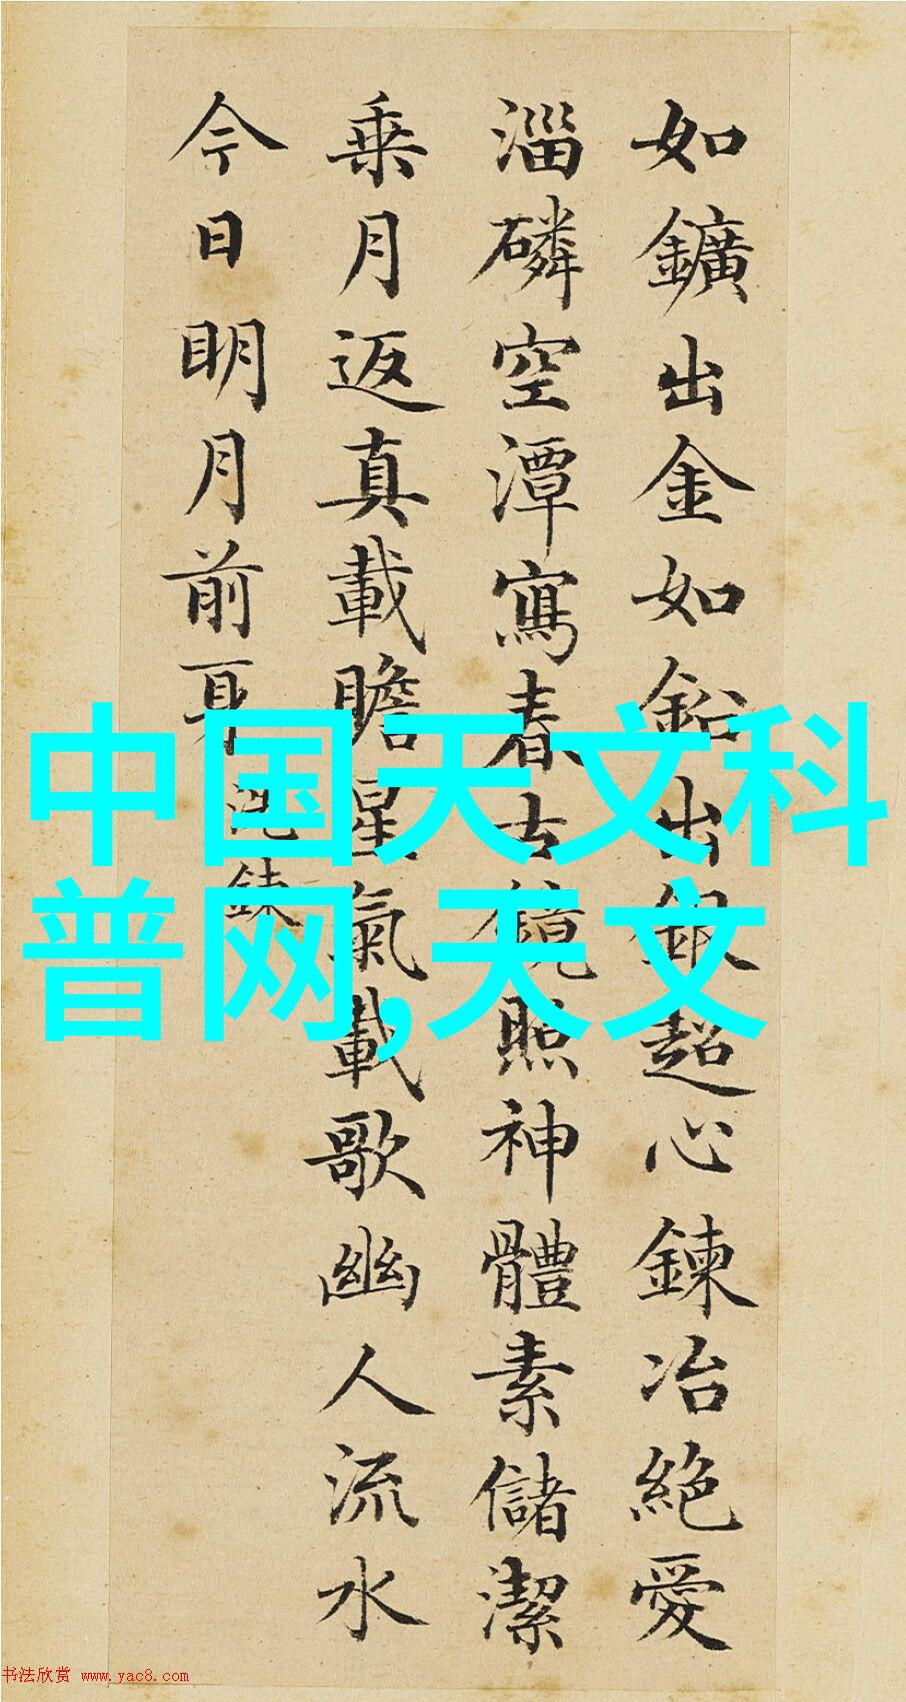 如鑛出金如鉛出銀超心鍊冶絕愛
淄磷空潭寫春古鏡照神體素儲潔
乘月返真載瞻星氣載歌幽人流水
今日明月前身
洗鍊
中国天文科
普网,天文
书法欣赏 www.yac8.com